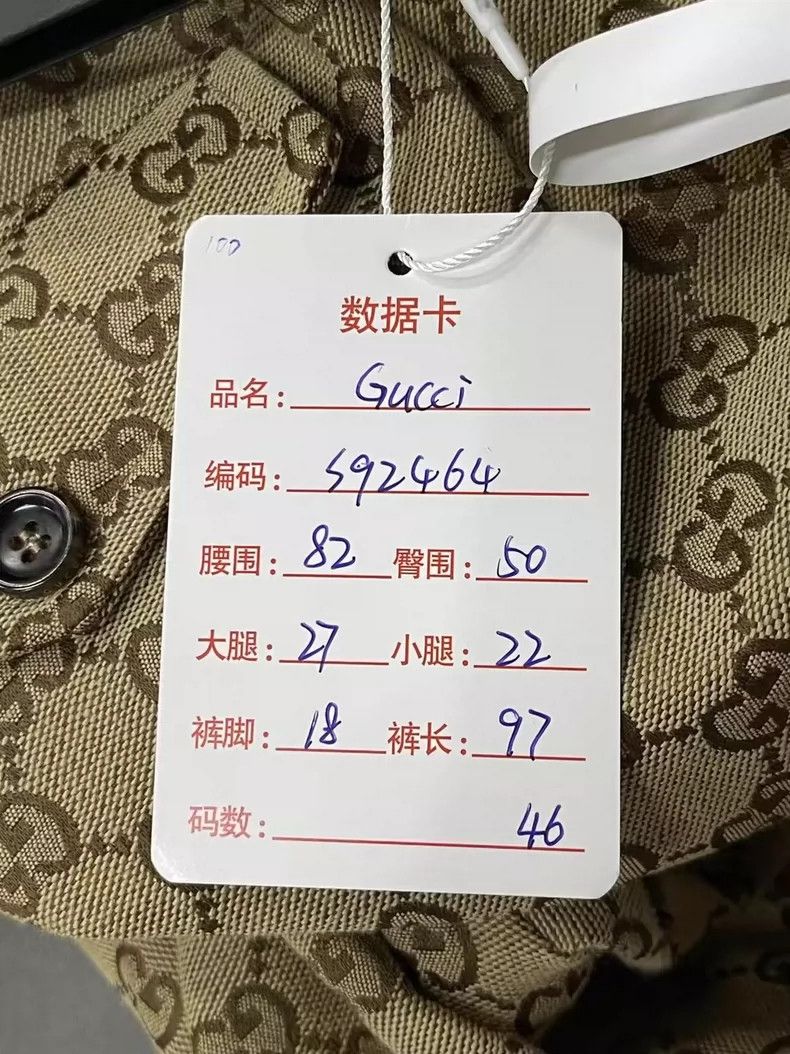 100
数据卡
品名: Gucci
编码: 592464
腰围: 82 臀围: 50
大腿: 27 小腿: 22
裤脚: 18 裤长: 97
码数: 46